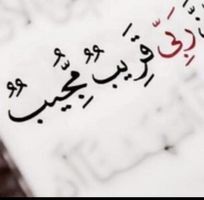 رَبِّي قَرِيبٌ مُّجِيبٌ